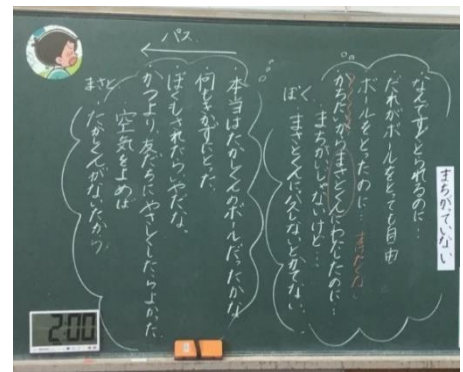 まちがっていない
なんですぐとられるのに…
だれがボールをとっても自由
ボールをとったのに…
かちたいからまさとくんにわたしたのに…
まちがいじゃないけど…
ぼく
まさとくんに入らないとかてない…
パス
本当はたかしくんのボールだったかな
何もきかずにとった
ぼくもされたらいやだな、
かつより、友だちにやさしくしたらよかった
空気をよめば
まさと
たかしくんがないたから
2:00